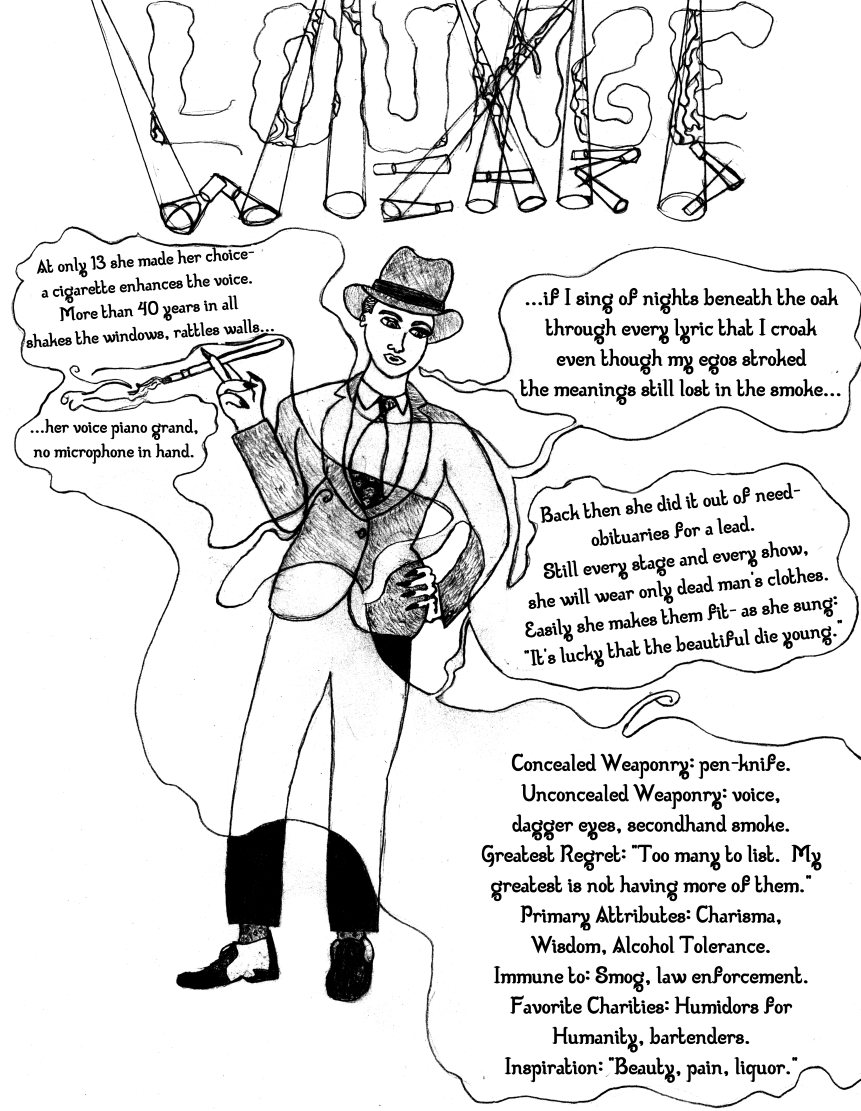 LOUNGE
WIZARD
At only 13 she made her choice-
a cigarette enhances the voice.
More than 40 years in all
shakes the windows, rattles walls...
...her voice piano grand,
no microphone in hand.
...if I sing of nights beneath the oak
through every lyric that I croak
even though my egos stroked
the meanings still lost in the smoke...
Back then she did it out of need-
obituaries for a lead.
Still every stage and every show,
she will wear only dead man's clothes.
Easily she makes them fit- as she sung:
"It's lucky that the beautiful die young."
Concealed Weaponry: pen-knife.
Unconcealed Weaponry: voice,
dagger eyes, secondhand smoke.
Greatest Regret: "Too many to list. My
greatest is not having more of them."
Primary Attributes: Charisma,
Wisdom, Alcohol Tolerance.
Immune to: Smog, law enforcement.
Favorite Charities: Humidors for
Humanity, bartenders.
Inspiration: "Beauty, pain, liquor."